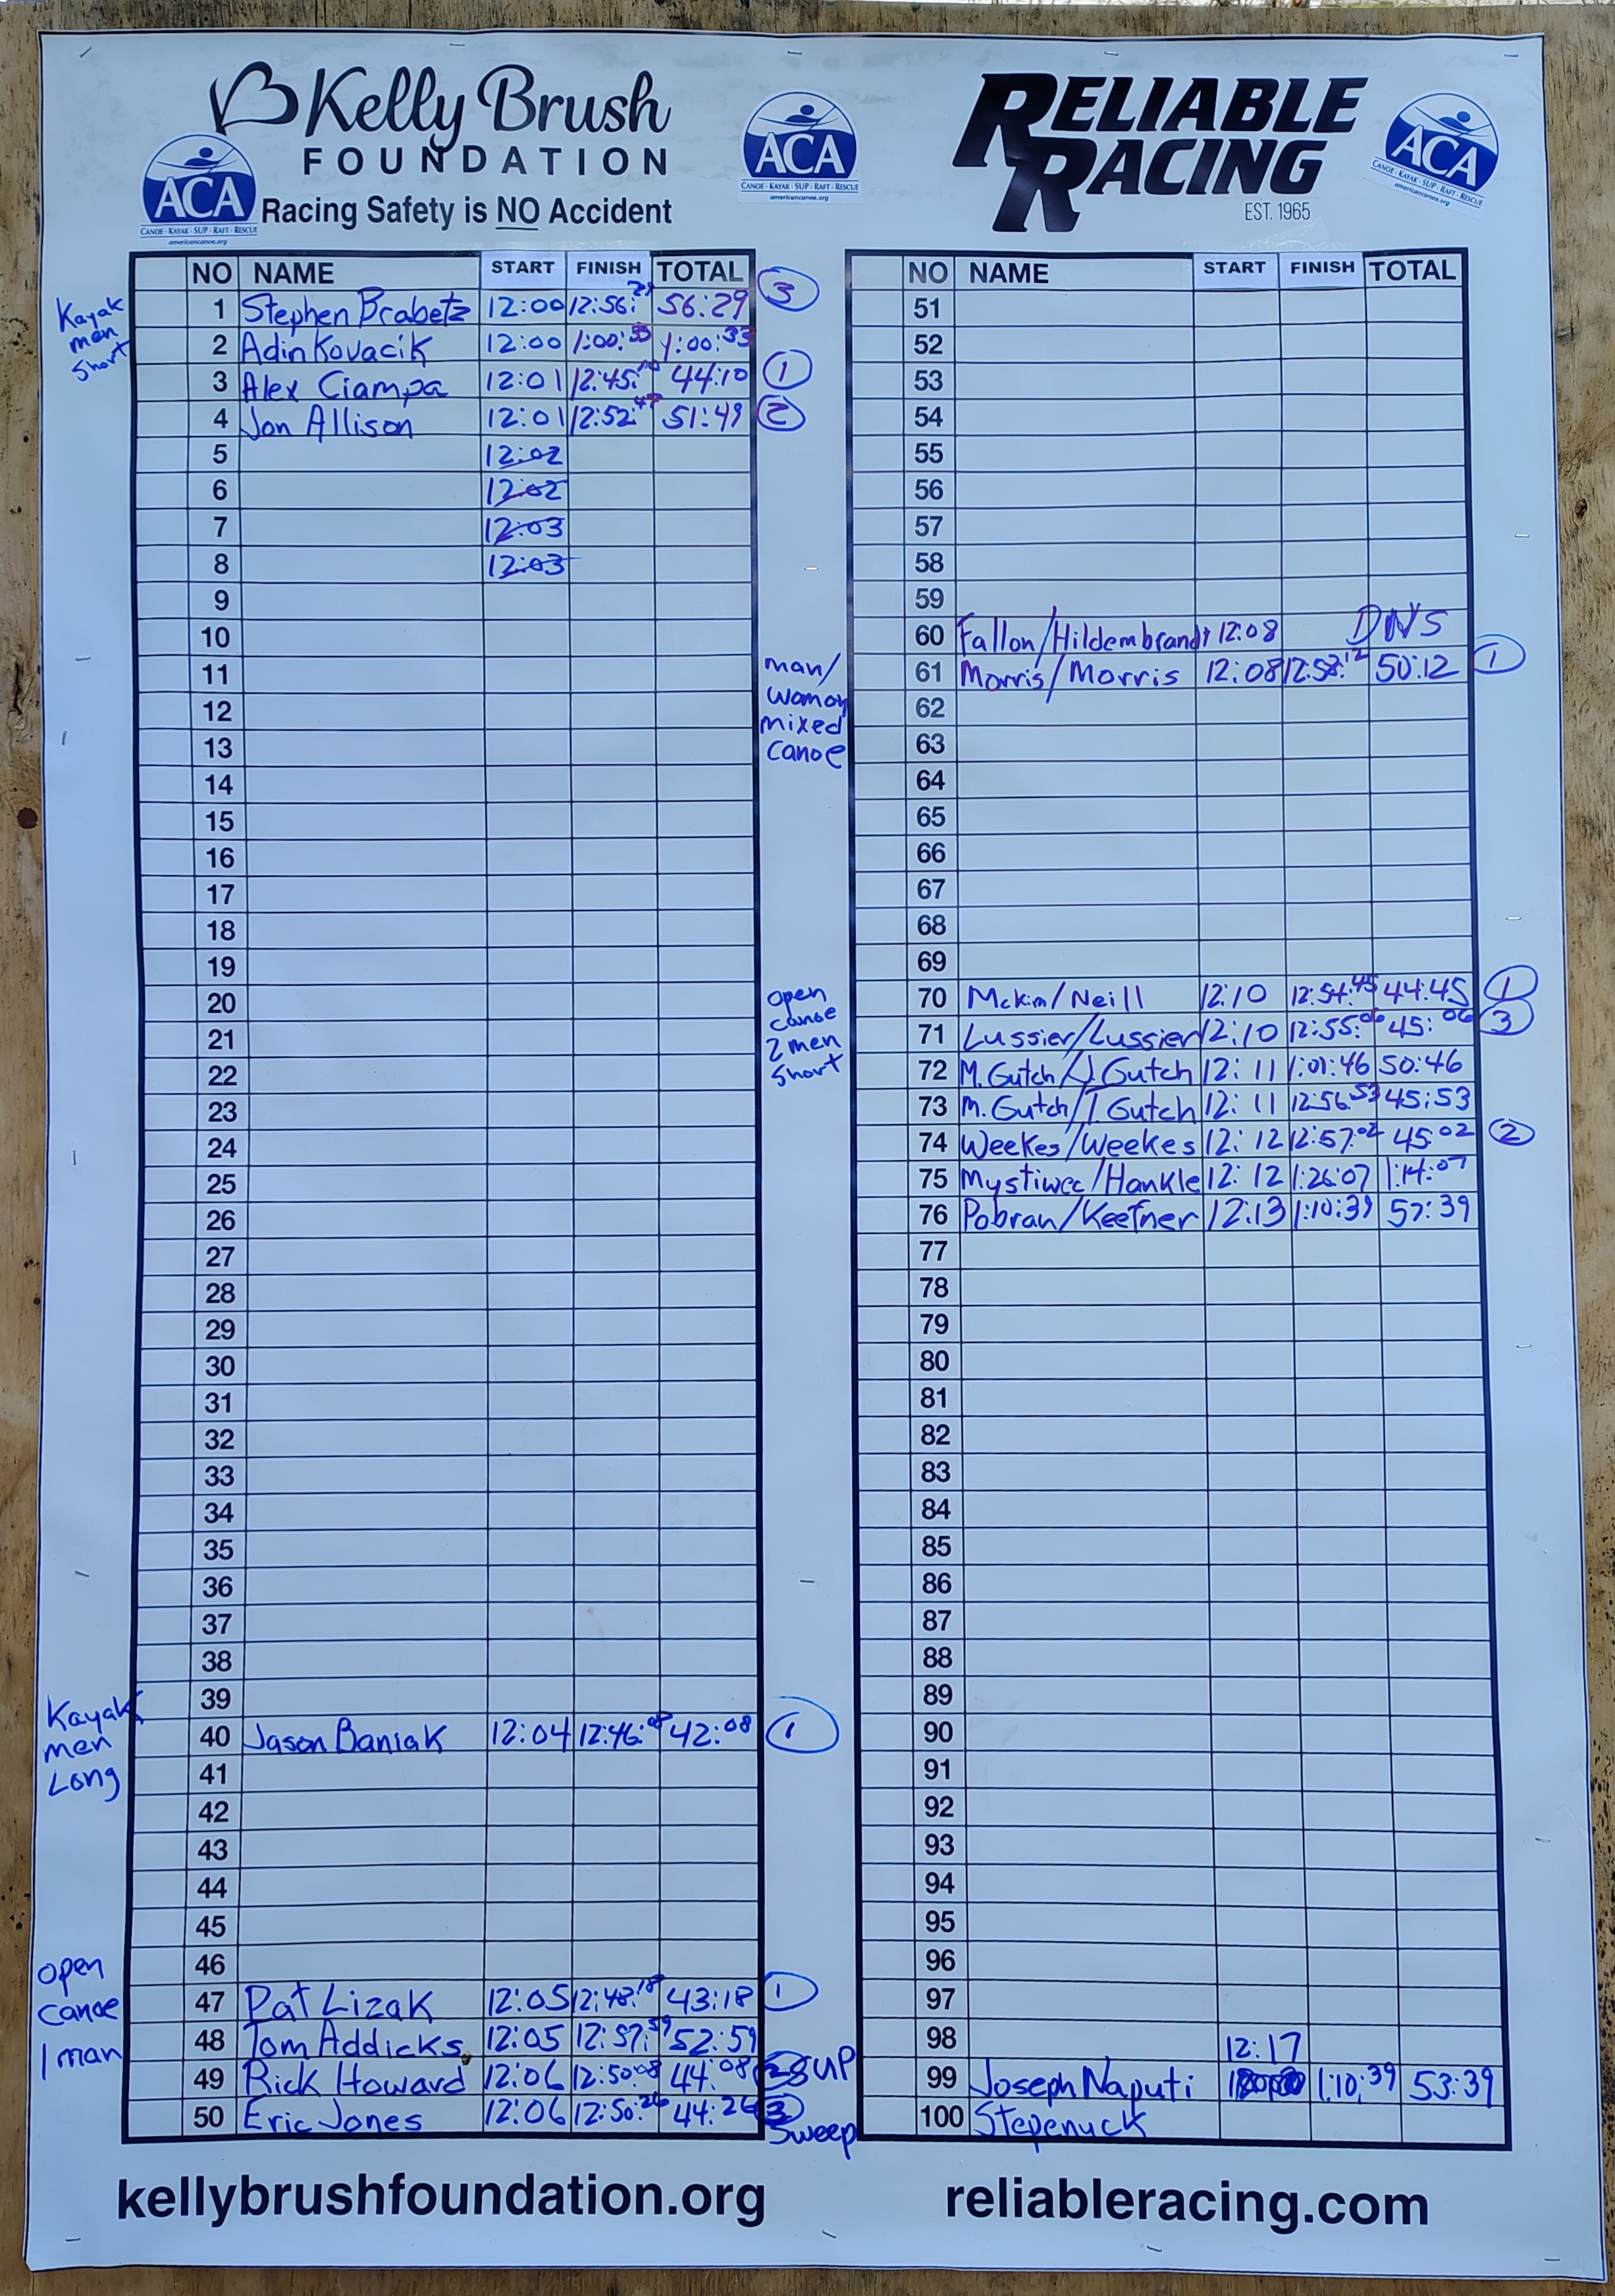 Kelly Brush
FOUNDATION
Racing Safety is NO Accident
ACA
CANOE · KAYAK · SUP · RAFT · RESCUE
americancanoe.org
ACA
CANOE · KAYAK · SUP · RAFT · RESCUE
americancanoe.org
RELIABLE
RACING
EST. 1965
ACA
CANOE · KAYAK · SUP · RAFT · RESCUE
americancanoe.org
NO NAME START FINISH TOTAL
Kayak
men
short
1 Stephen Brabetz 12:00 12:56:29 56:29 3
2 Adin Kovacik 12:00 1:00:33 1:00:33
3 Alex Ciampa 12:01 12:45:10 44:10 1
4 Jon Allison 12:01 12:52:49 51:49 2
5 12:02
6 12:02
7 12:03
8 12:03
9
10
11
12
13
14
15
16
17
18
19
20
21
22
23
24
25
26
27
28
29
30
31
32
33
34
35
36
37
38
39
Kayak
men
Long
40 Jason Baniak 12:04 12:46:08 42:08 1
41
42
43
44
45
46
open
canoe
1 man
47 Pat Lizak 12:05 12:48:18 43:18 1
48 Tom Addicks 12:05 12:57:59 52:59
49 Rick Howard 12:06 12:50:08 44:08 2
50 Eric Jones 12:06 12:50:26 44:26 3
NO NAME START FINISH TOTAL
51
52
53
54
55
56
57
58
59
60 Fallon/Hildembrandt 12:08 DNS
man/
woman
mixed
canoe
61 Morris/Morris 12:08 12:58:12 50:12 1
62
63
64
65
66
67
68
69
open
canoe
2 men
short
70 Mckim/Neill 12:10 12:54:45 44:45 1
71 Lussier/Lussier 12:10 12:55:06 45:06 3
72 M. Gutch/J. Gutch 12:11 1:01:46 50:46
73 M. Gutch/T. Gutch 12:11 12:56:53 45:53
74 Weekes/Weekes 12:12 12:57:02 45:02 2
75 Mystiwec/Hankle 12:12 1:26:07 1:14:07
76 Pobran/Keefner 12:13 1:10:39 57:39
77
78
79
80
81
82
83
84
85
86
87
88
89
90
91
92
93
94
95
96
97
98 12:17
SUP
99 Joseph Naputi 1:10:39 53:39
Sweep
100 Stepenuck
kellybrushfoundation.org
reliableracing.com